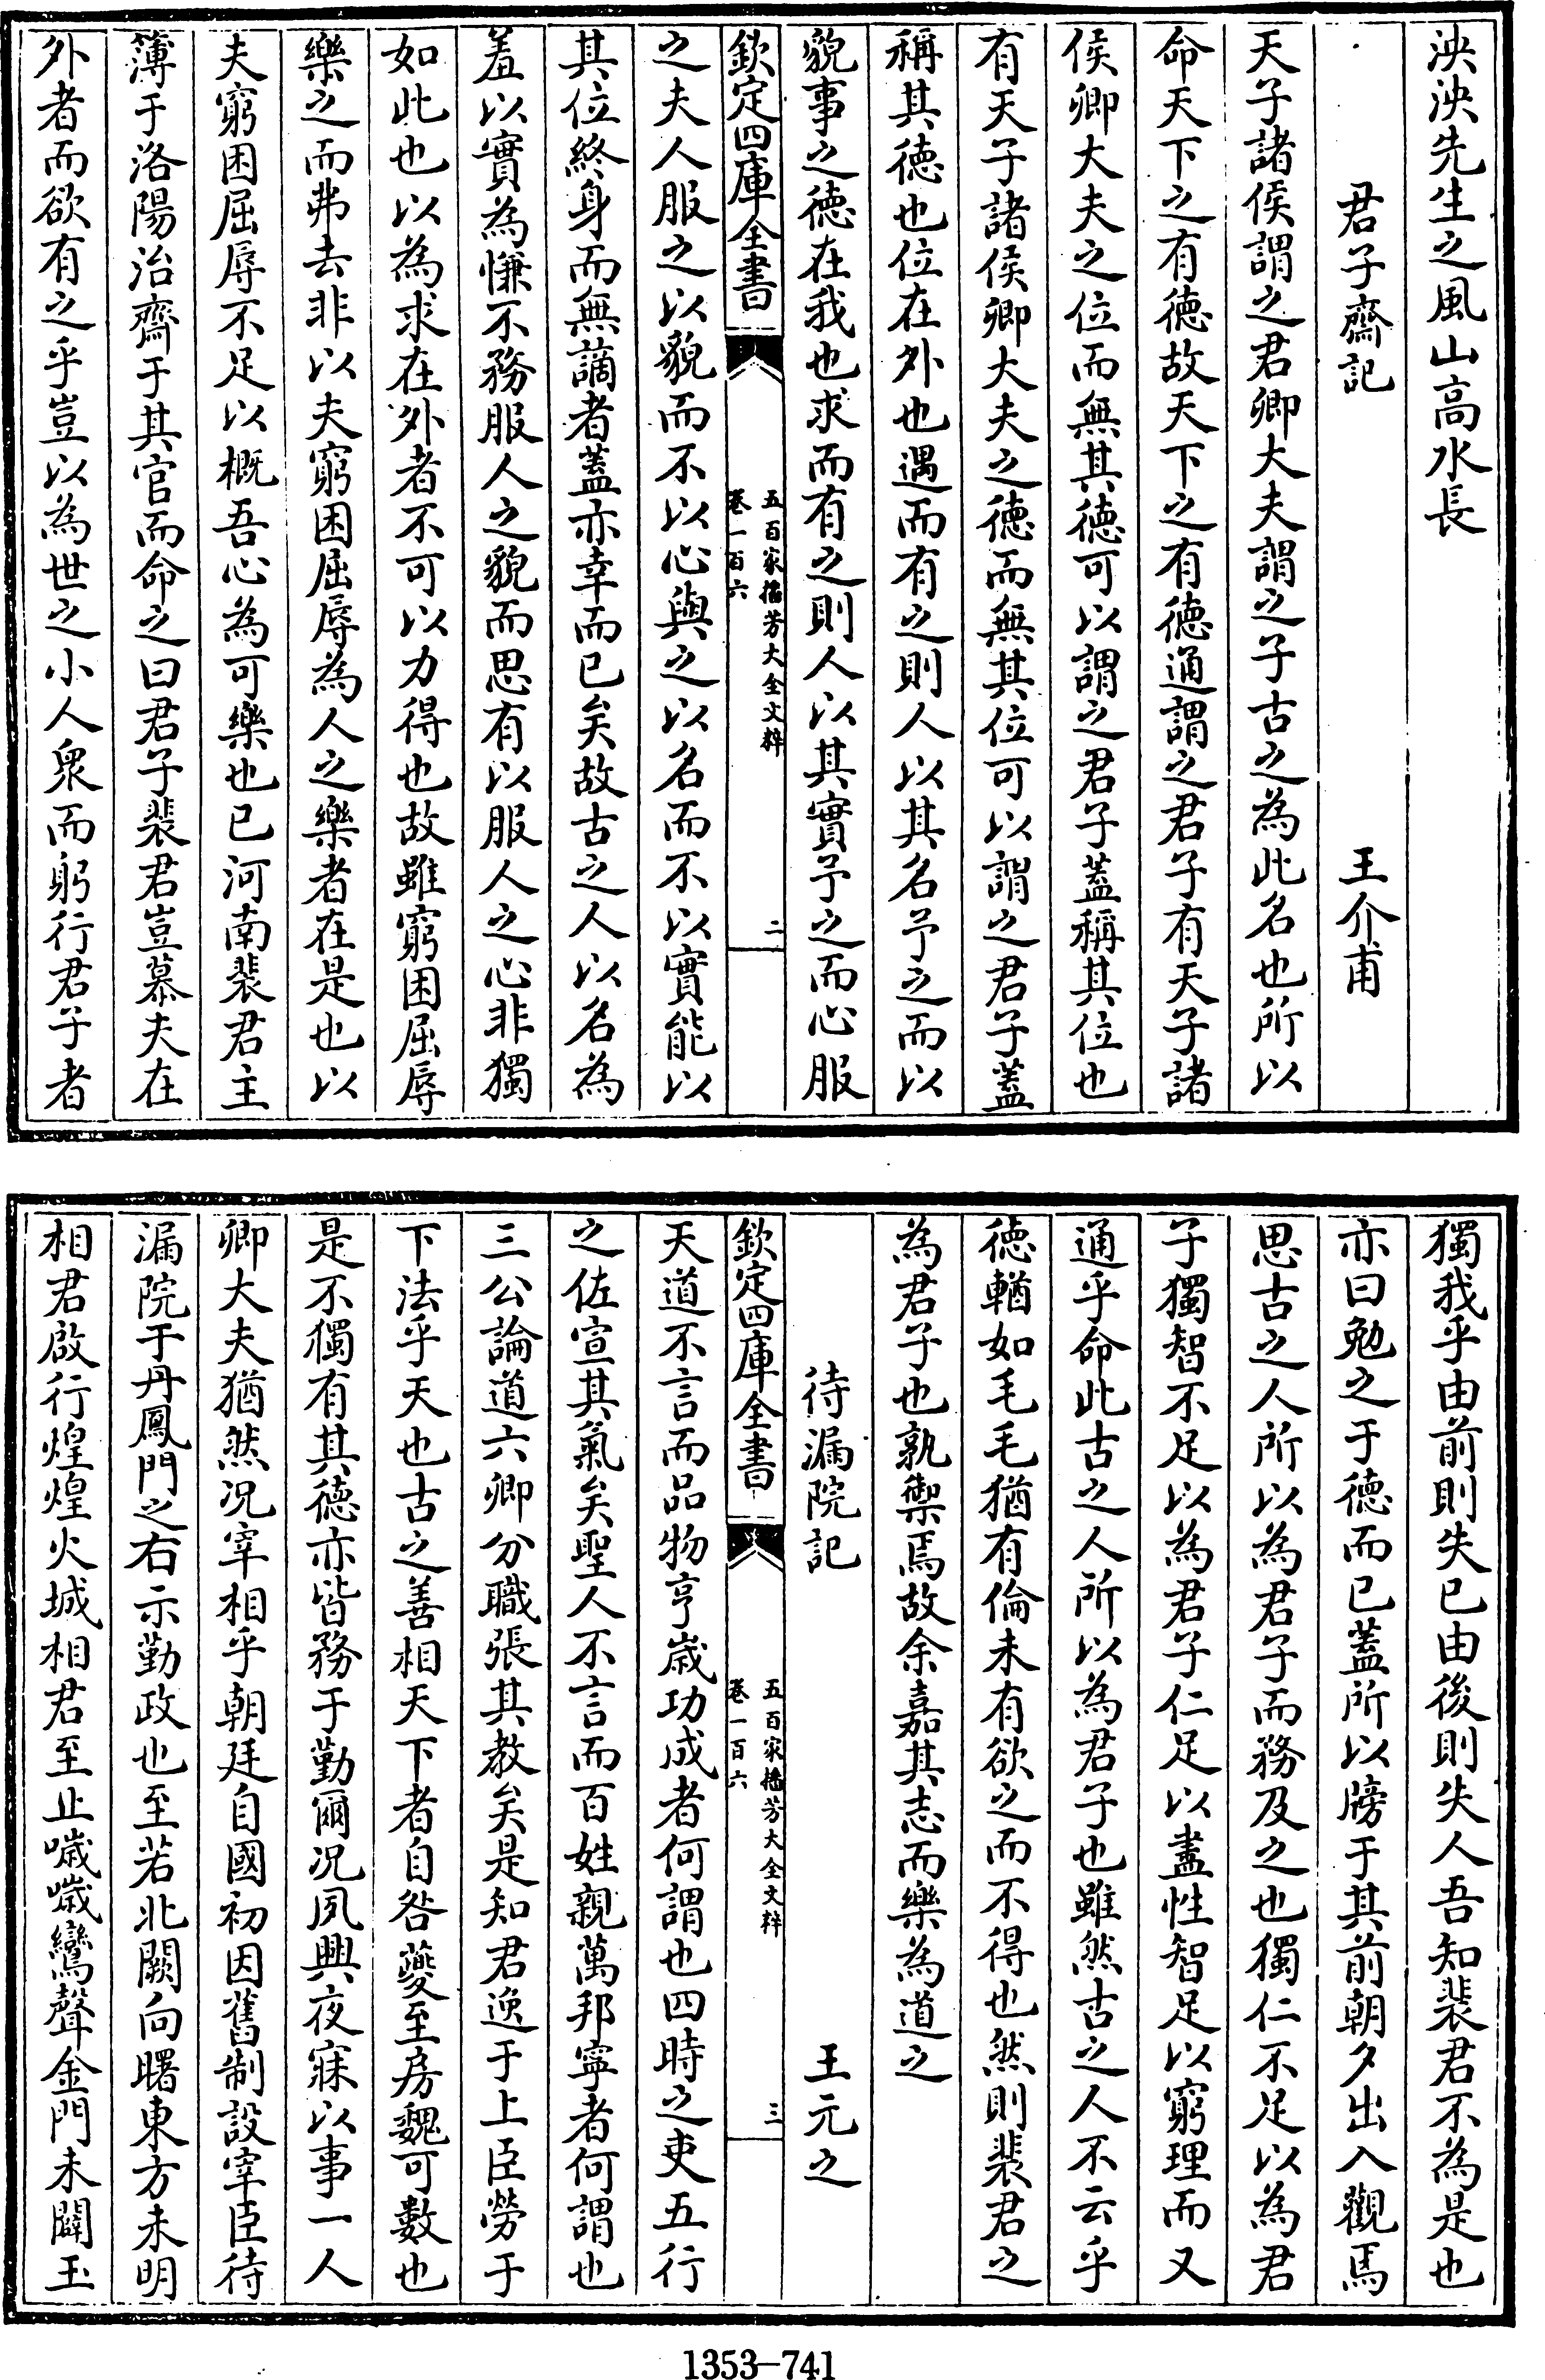 泱泱先生之風山高水長
君子齋記　王介甫
天子諸侯謂之君卿大夫謂之子古之為此名也所以
命天下之有徳故天下之有徳通謂之君子有天子諸
侯卿大夫之位而無其徳可以謂之君子蓋稱其位也
有天子諸侯卿大夫之徳而無其位可以謂之君子蓋
稱其徳也位在外也遇而有之則人以其名予之而以
貌事之徳在我也求而有之則人以其實予之而心服
欽定四庫全書　五百家播芳大全文粹　卷一百六　二
之夫人服之以貌而不以心與之以名而不以實能以
其位終身而無謫者蓋亦幸而已矣故古之人以名為
羞以實為慊不務服人之貌而思有以服人之心非獨
如此也以為求在外者不可以力得也故雖窮困屈辱
樂之而弗去非以夫窮困屈辱為人之樂者在是也以
夫窮困屈辱不足以概吾心為可樂也已河南裴君主
簿于洛陽治齋于其官而命之曰君子裴君豈慕夫在
外者而欲有之乎豈以為世之小人衆而躬行君子者
獨我乎由前則失已由後則失人吾知裴君不為是也
亦曰勉之于徳而已蓋所以牓于其前朝夕出入觀焉
思古之人所以為君子而務及之也獨仁不足以為君
子獨智不足以為君子仁足以盡性智足以窮理而又
通乎命此古之人所以為君子也雖然古之人不云乎
徳輶如毛毛猶有倫未有欲之而不得也然則裴君之
為君子也孰禦焉故余嘉其志而樂為道之
待漏院記　王元之
欽定四庫全書　五百家播芳大全文粹　卷一百六　三
天道不言而品物亨歳功成者何謂也四時之吏五行
之佐宣其氣矣聖人不言而百姓親萬邦寧者何謂也
三公論道六卿分職張其教矣是知君逸于上臣勞于
下法乎天也古之善相天下者自咎夔至房魏可數也
是不獨有其德亦皆務于勤爾况夙興夜寐以事一人
卿大夫猶然况宰相乎朝廷自國初因舊制設宰臣待
漏院于丹鳳門之右示勤政也至若北闕向曙東方未明
相君啟行煌煌火城相君至止噦噦鸞聲金門未闢玉
1353-741